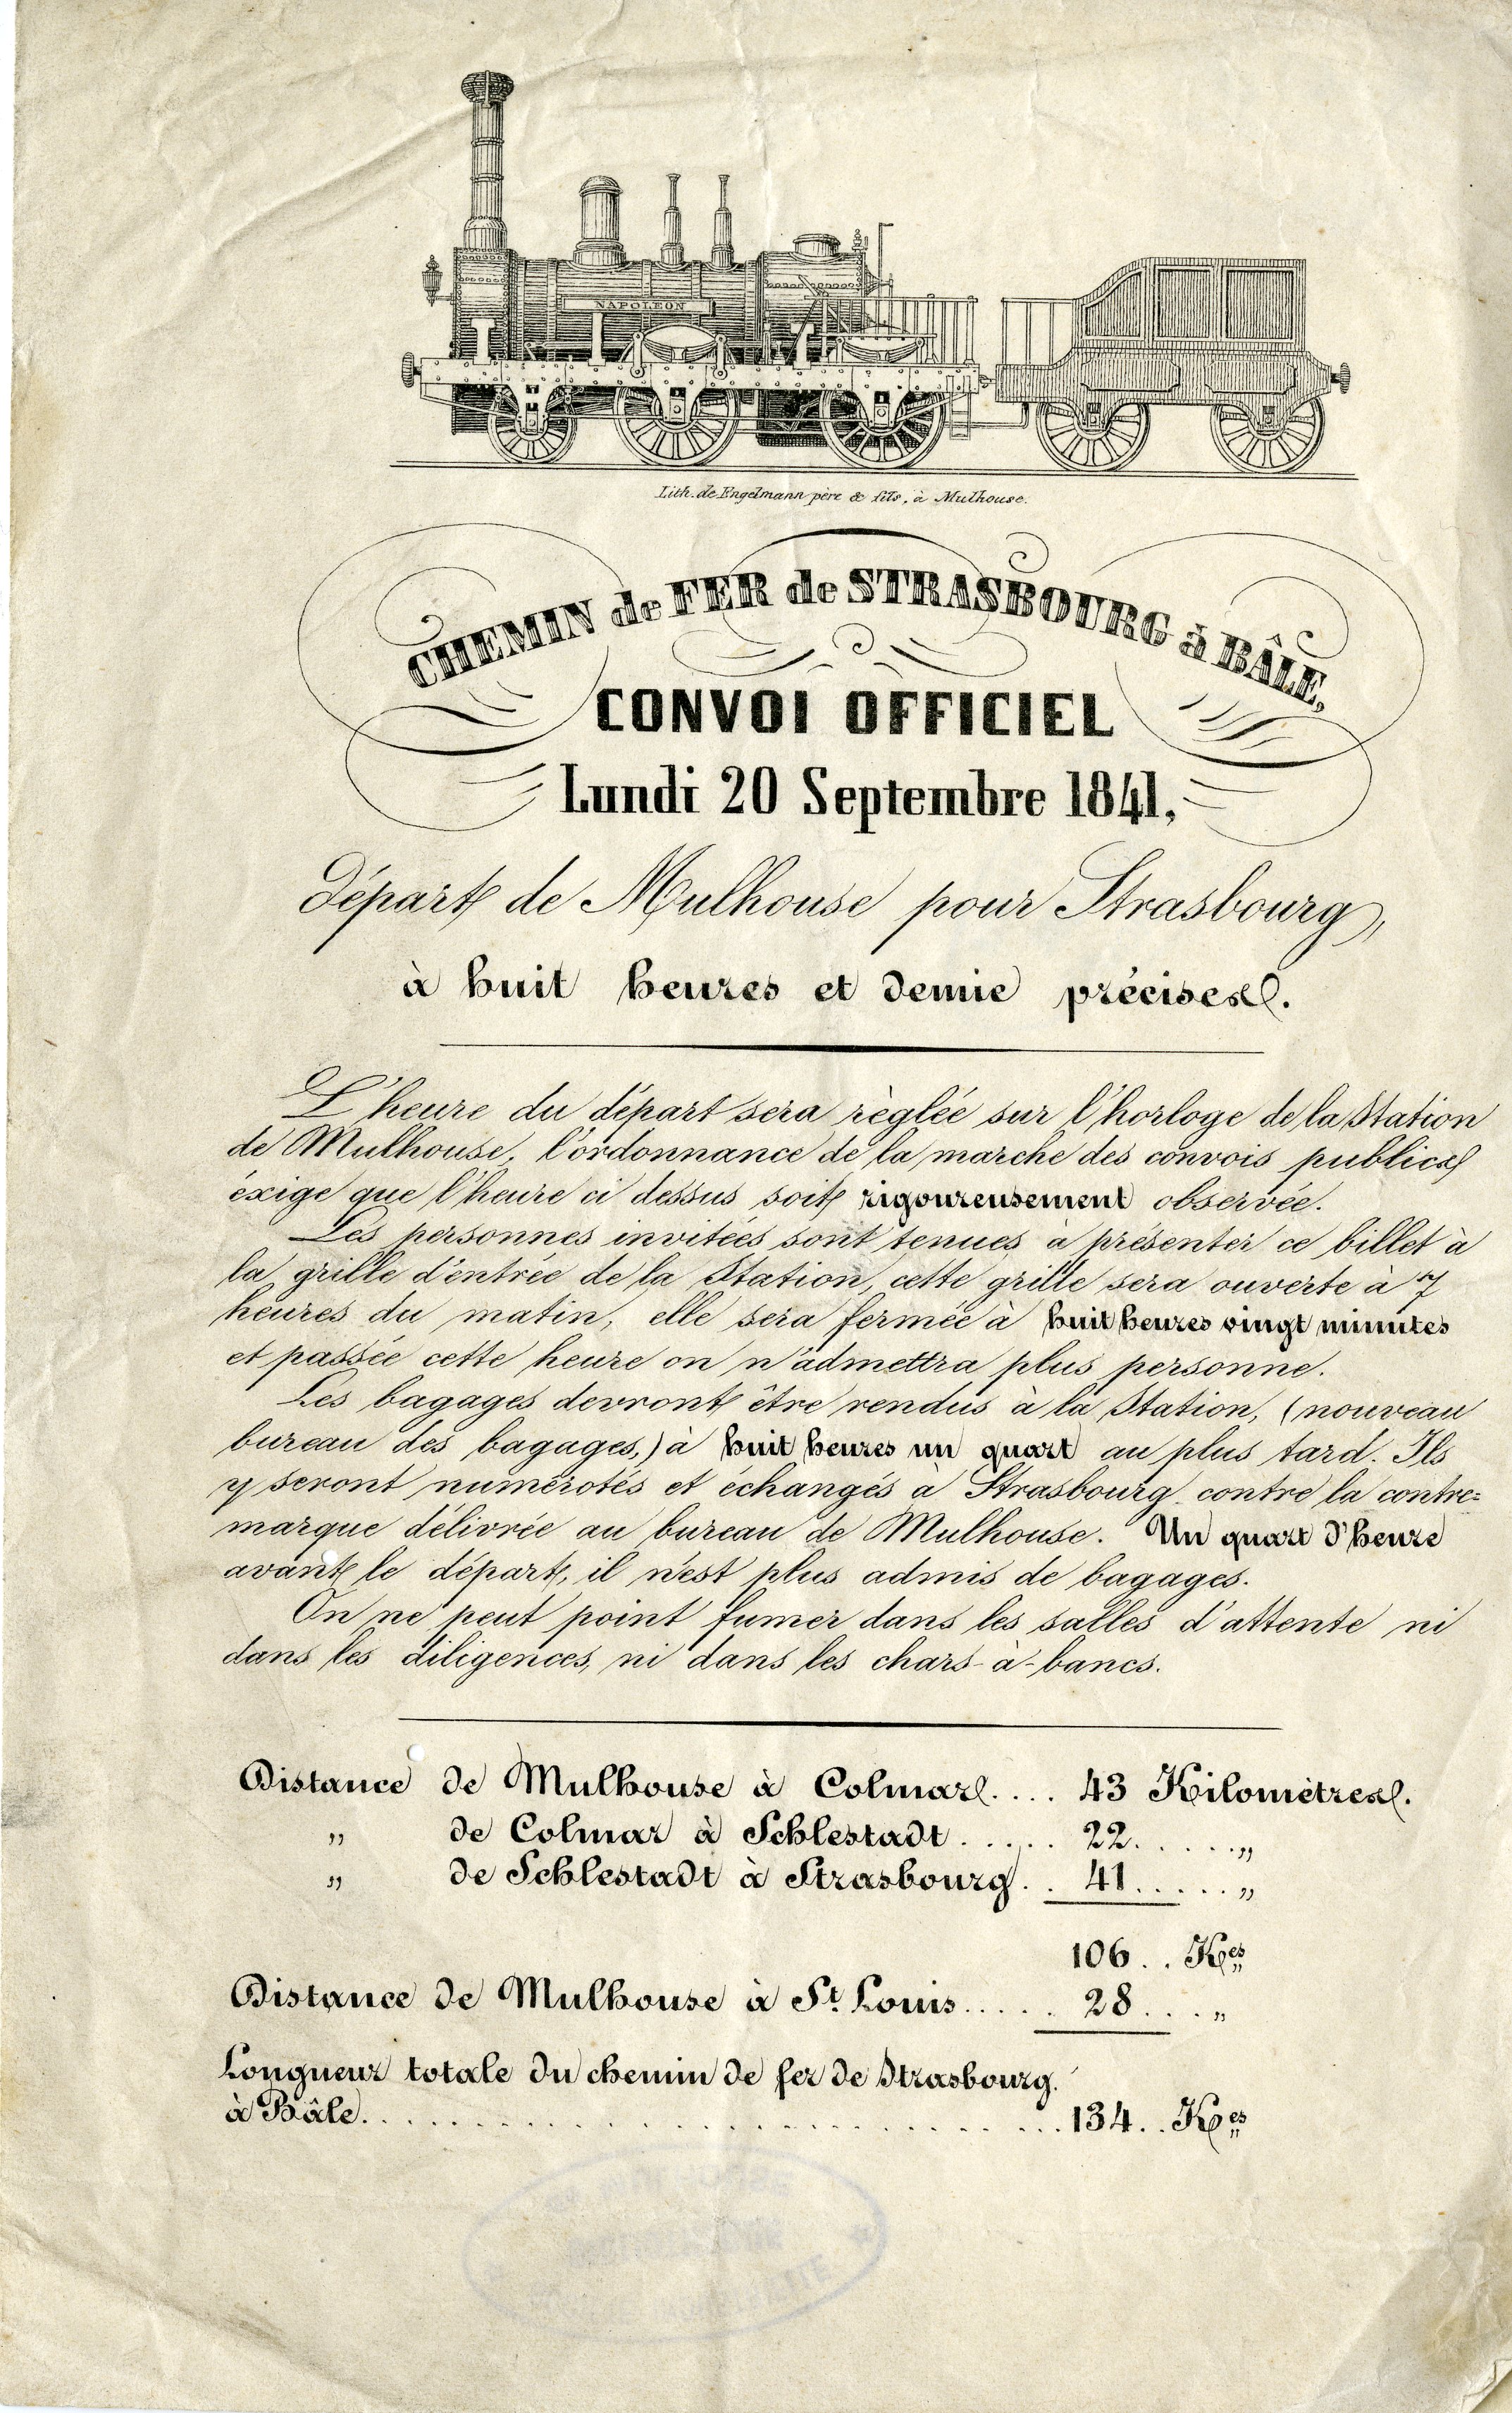 NAPOLEON
Lith. de Engelmann père & fils, à Mulhouse.
CHEMIN de FER de STRASBOURG à BÂLE,
CONVOI OFFICIEL
Lundi 20 Septembre 1841,
Départ de Mulhouse pour Strasbourg,
à huit heures et demie précises.
L'heure du départ sera règlée sur l'horloge de la Station
de Mulhouse, l'ordonnance de la marche des convois publics
éxige que l'heure ci dessus soit rigoureusement observée.
Les personnes invitées sont tenues à présenter ce billet à
la grille d'entrée de la Station, cette grille sera ouverte à 7
heures du matin, elle sera fermée à huit heures vingt minutes
et passée cette heure on n'admettra plus personne.
Les bagages devront être rendus à la Station, (nouveau
bureau des bagages,) à huit heures un quart au plus tard. Ils
y seront numérotés et échangés à Strasbourg contre la contre=
marque délivrée au bureau de Mulhouse. Un quart d'heure
avant le départ, il n'est plus admis de bagages.
On ne peut point fumer dans les salles d'attente ni
dans les diligences, ni dans les chars-à-bancs.
Distance de Mulhouse à Colmar.... 43 Kilomètres.
" de Colmar à Schlestadt...... 22......"
" de Schlestadt à Strasbourg.. 41....."
106.. K.es
Distance de Mulhouse à St Louis..... 28...."
Longueur totale du chemin de fer de Strasbourg.
à Bâle............................134.. K.es